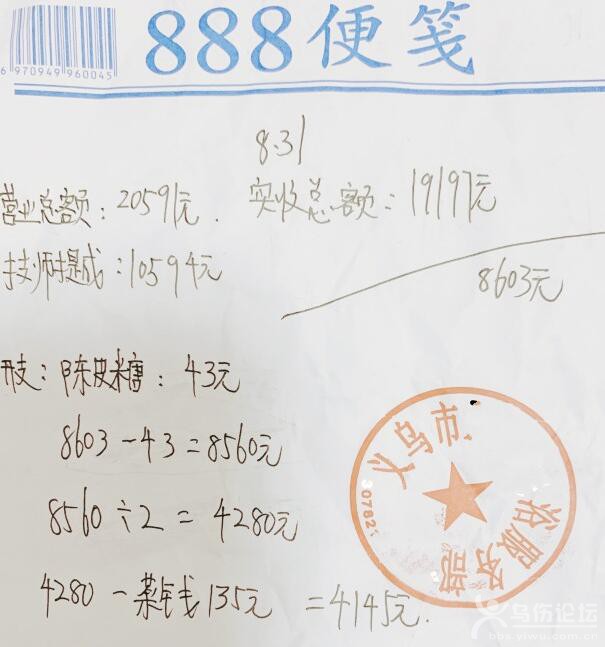 888便笺
6 970949 960045
8.31
营业总额：20591元. 实收总额：19197元
技师提成：10594元
8603元
开支：陈皮糖：43元
8603－43＝8560元
8560÷2＝4280元
4280－菜钱135元＝4145元.
义乌市
服务部
30782
鸟伤论坛
bbs.yiwu.com.cn